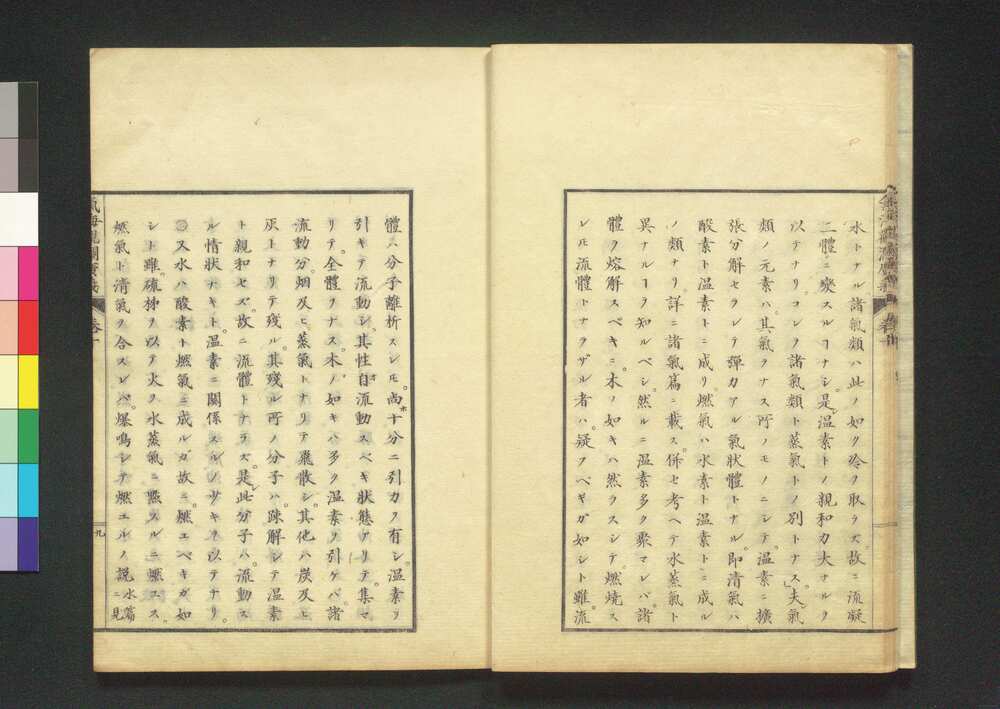 氷トナル諸氣類ハ此ノ如ク冷ヲ取ラズ故ニ流凝
二體ニ變スルヿナシ是温素トノ親和力大ナルヲ
以テナリコレヲ諸氣類ト蒸氣トノ別トナス夫氣
類ノ元素ハ其氣ヲナス所ノモノニシテ温素ニ擴
張分解セラレテ彈力アル氣狀體トナル即清氣ハ
酸素ト温素トニ成リ燃氣ハ水素ト温素トニ成ル
ノ類ナリ詳ニ諸氣篇ニ載ス併セ考ヘテ水蒸氣ト
異ナルヿヲ知ルベシ然ルニ温素多ク聚マレバ諸
體ヲ熔解スベキニ木ノ如キハ然ラスシテ燃燒ス
レモ流體トナラザル者ハ疑フベキガ如シト雖流
體ハ分子離析スレモ尚十分ニ引力ヲ有シ温素ヲ
引キテ流動シ其性自流動スベキ狀態アリテ集マ
リテ全體ヲナス木ノ如キハ多ク温素ヲ引ケバ諸
流動分烟及ヒ蒸氣トナリテ飛散シ其他ハ炭及ヒ
灰トナリテ殘ル其殘ル所ノ分子ハ疎解シテ温素
ト親和セズ故ニ流體トナラズ是此分子ハ流動ス
ル情狀ナキト温素ニ關係スルノ少キヲ以テナリ
◎又水ハ酸素ト燃氣ニ成ルガ故ニ燃エベキガ如
シト雖硫拂ヲ以テ火ヲ水蒸氣ニ點スルニ燃ヘス
燃氣ト清氣ヲ合スレバ爆鳴シテ燃エルノ說水篇ニ見
卷十
九